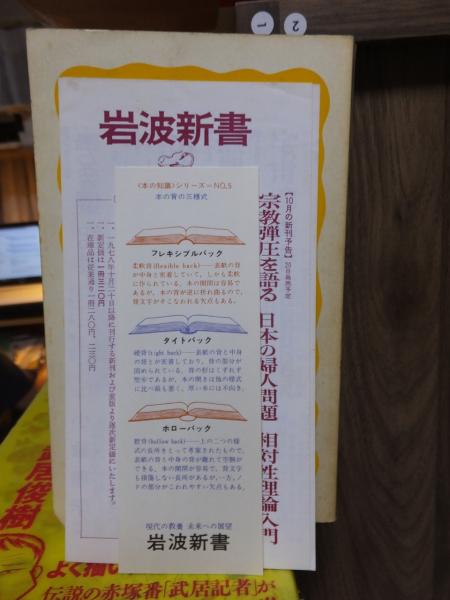 2
1
岩波新書
〈本の知識〉シリーズ=NO.5
本の背の三様式
フレキシブルバック
柔軟背(flexible back)——表紙の背
が中身と密着していて,しかも柔軟
に作られている.本の開閉は容易で
あるが,本の背が逆に折れ曲るので,
背文字がそこなわれる欠点もある.
タイトバック
硬背(tight back)——表紙の背と中身
の背とが密着しており,背の部分が
固められている.背の形はくずれず
堅牢であるが,本の開きは他の様式
に比べ最も悪く,厚い本には不向き.
ホローバック
腔背(hollow back)——上の二つの様
式の長所をとって考案されたもので,
表紙の背と中身の背が離れて空洞が
できる.本の開閉が容易で,背文字
も損傷しない長所があるが,一方,ノ
ドの部分がこわれやすい欠点もある.
現代の教養 未来への展望
岩波新書
【10月の新刊予告】20日発売予定
宗教弾圧を語る 日本の婦人問題 相対性理論入門
一、一九七八年十月二十日以降に刊行する新刊および重版より逐次新定価にいたします。
一、新定価は一冊三二〇円
一、在庫品は従来通り一冊二八〇円、二三〇円
武居俊樹
よく描い
伝説の赤塚番「武居記者」が